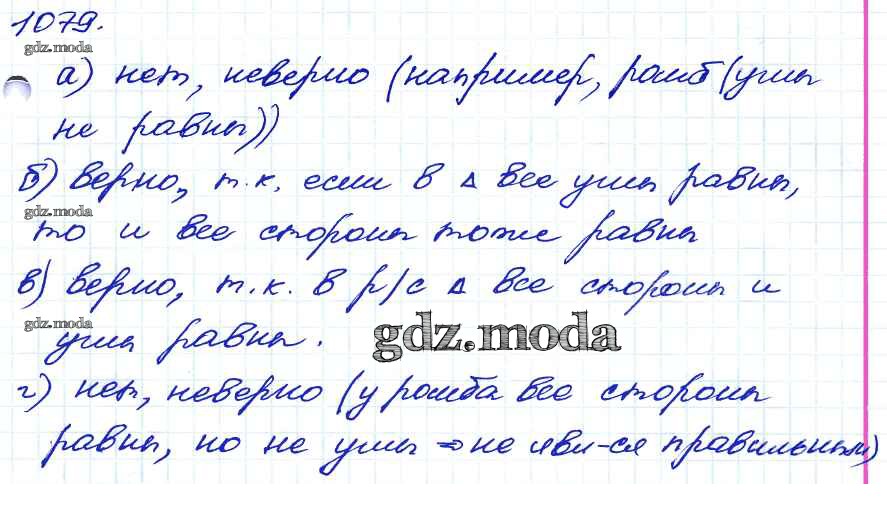 1079.
gdz.moda
а) нет, неверно (например, ромб (углы
не равны))
б) верно, т.к. если в △ все углы равны,
gdz.moda
то и все стороны тоже равны
в) верно, т.к. в р/с △ все стороны и
gdz.moda
углы равны.
gdz.moda
г) нет, неверно (у ромба все стороны
равны, но не углы ⇒ не явл-ся правильным)